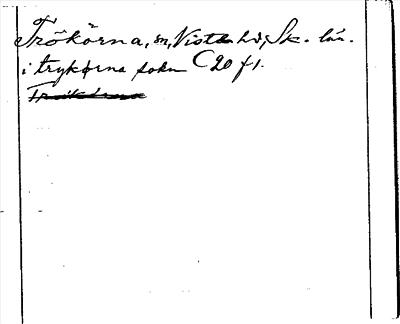 Trökörna, sn, Viste hd, Sk. län.
i trykørna sokn C20 f1.